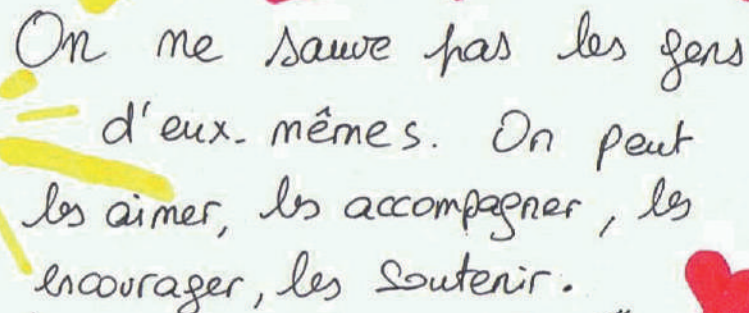 On ne sauve pas les gens
d'eux-mêmes. On peut
les aimer, les accompagner, les
encourager, les soutenir.